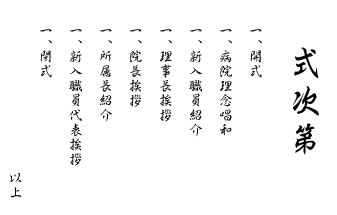 式次第
一、開式
一、病院理念唱和
一、新入職員紹介
一、理事長挨拶
一、院長挨拶
一、所属長紹介
一、新入職員代表挨拶
一、閉式
以上